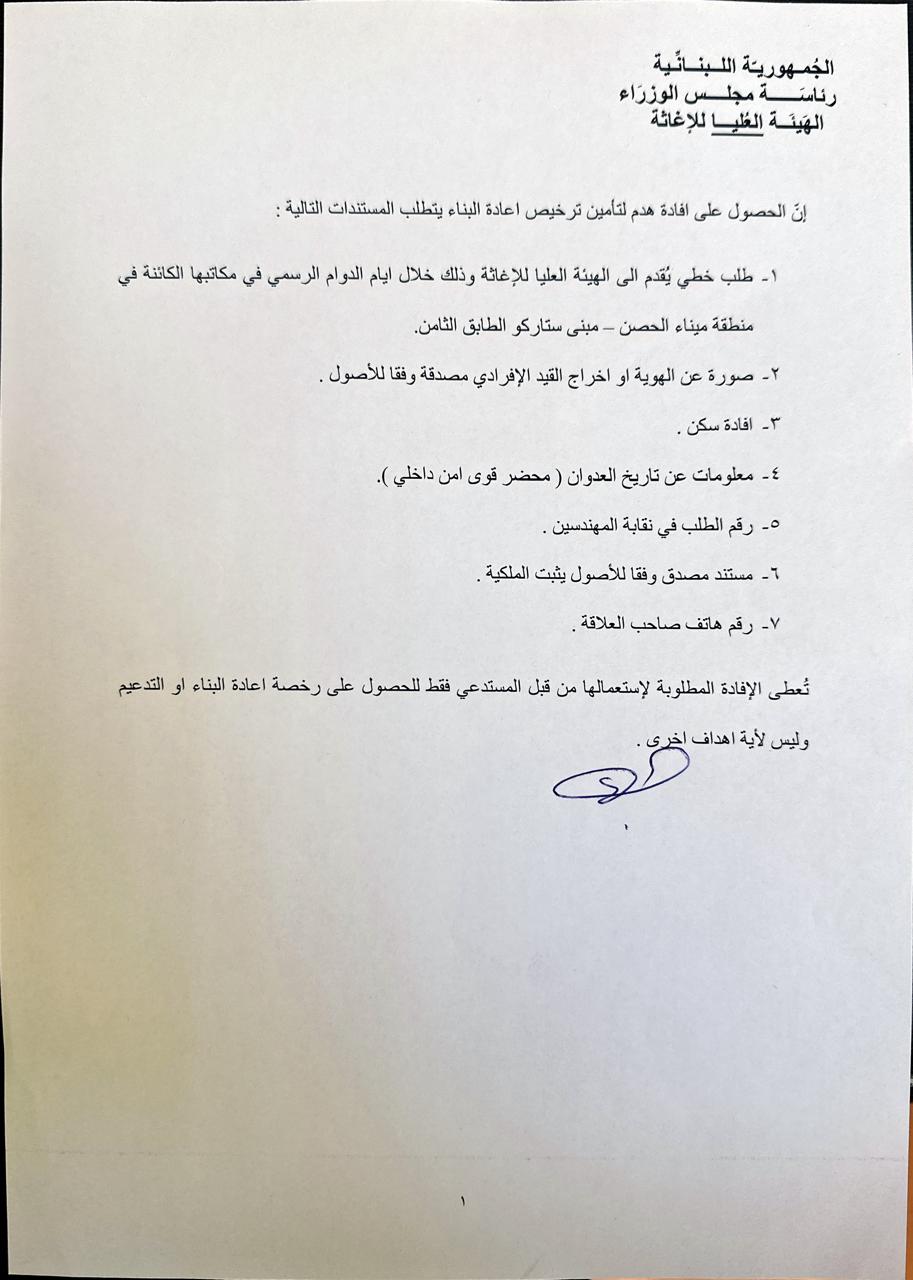 الجُمـهوريـّة اللـبنـانّـية
رئاسَـــة مجلـــس الوزرَاء
الهَيئَـة العُليـا للإغاثة
إنّ الحصول على افادة هدم لتأمين ترخيص اعادة البناء يتطلب المستندات التالية :
١- طلب خطي يُقدم الى الهيئة العليا للإغاثة وذلك خلال ايام الدوام الرسمي في مكاتبها الكائنة في
منطقة ميناء الحصن – مبنى ستاركو الطابق الثامن.
٢- صورة عن الهوية او اخراج القيد الإفرادي مصدقة وفقا للأصول .
٣- افادة سكن .
٤- معلومات عن تاريخ العدوان ( محضر قوى امن داخلي ).
٥- رقم الطلب في نقابة المهندسين .
٦- مستند مصدق وفقا للأصول يثبت الملكية .
٧- رقم هاتف صاحب العلاقة .
تُعطى الإفادة المطلوبة لإستعمالها من قبل المستدعي فقط للحصول على رخصة اعادة البناء او التدعيم
وليس لأية اهداف اخرى .
١